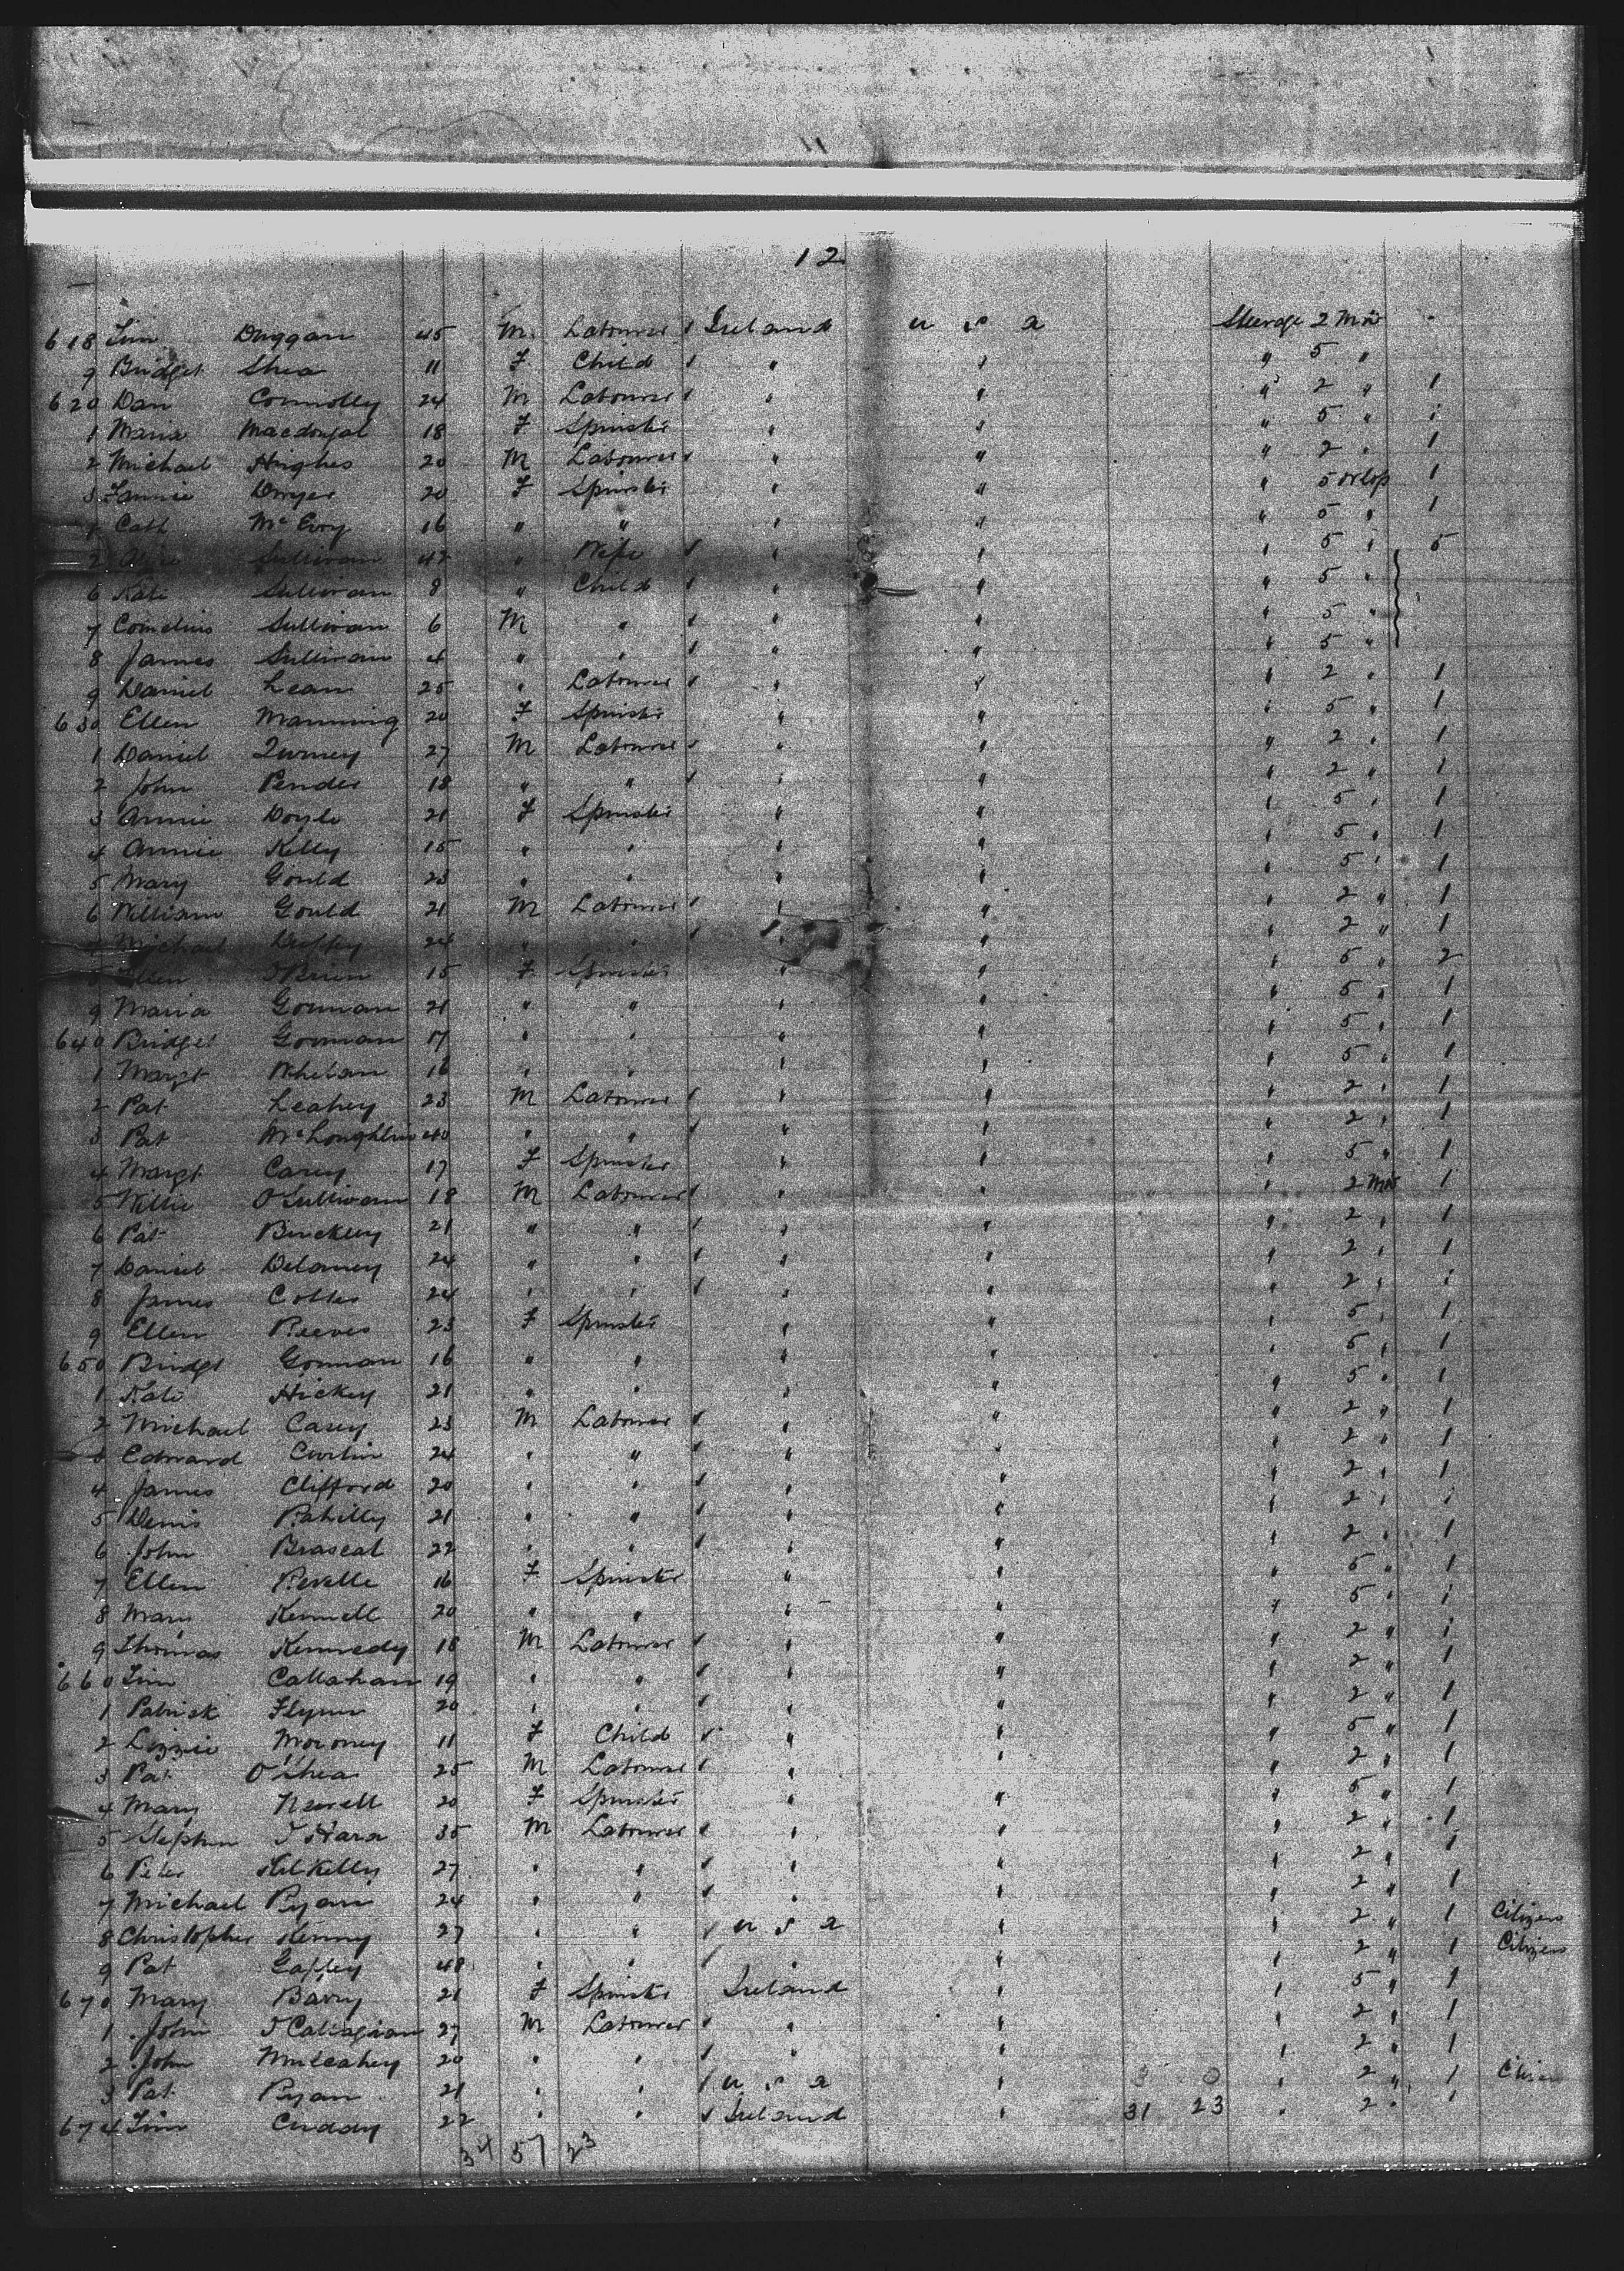 12
618 Tim Duggan 45 M. Labourer Ireland U S A Steerage 2 Main
9 Bridget Shea 11 F Child " " " 5 "
620 Dan Connolly 24 M Labourer " " " 2 " 1
1 Maria Macdougal 18 F Spinster " " " 5 " 1
2 Michael Hughes 20 M Labourer " " " 2 " 1
3 Fannie Dwyer 20 F Spinster " " " 5 Orlop 1
4 Cath McEvoy 16 " " " " " 5 " 1
Sullivan 42 " Wife " " " 5 " 5
6 Kate Sullivan 8 " Child " " " 5 "
7 Cornelius Sullivan 6 M " " " " 5 "
8 James Sullivan 4 " " " " " 5 "
9 Daniel Lean 25 " Labourer " " " 2 " 1
630 Ellen Manning 20 F Spinster " " " 5 " 1
1 Daniel 27 M Labourer " " " 2 " 1
2 John Pender 18 " " " " " 2 " 1
3 Annie Doyle 21 F Spinster " " " 5 " 1
4 Annie Kelly 15 " " " " " 5 " 1
5 Mary Gould 23 " " " " " 5 " 1
6 William Gould 21 M Labourer " " " 2 " 1
7 Michael 24 " " " " " 2 " 1
8 Ellen O'Brien 15 F Spinster " " " 5 " 2
9 Maria Gorman 21 " " " " " 5 " 1
640 Bridget Gorman 17 " " " " " 5 " 1
1 Margt Whelan 16 " " " " " 5 " 1
2 Pat Leahey 23 M Labourer " " " 2 " 1
3 Pat McLoughlin 40 " " " " " 2 " 1
4 Margt Carey 17 F Spinster " " " 5 " 1
5 Willie O'Sullivan 18 M Labourer " " " 2 Main 1
6 Pat Buckley 21 " " " " " 2 " 1
7 Daniel Delaney 24 " " " " " 2 " 1
8 James 24 " " " " " 2 " 1
9 Ellen Reeves 23 F Spinster " " " 5 " 1
650 Bridgt Gorman 16 " " " " " 5 " 1
1 Kate Hickey 21 " " " " " 5 " 1
2 Michael Casey 23 M Labourer " " " 2 " 1
3 Edward Curtin 24 " " " " " 2 " 1
4 James Clifford 20 " " " " " 2 " 1
5 Denis Rahilly 21 " " " " " 2 " 1
6 John Braseal 22 " " " " " 2 " 1
7 Ellen Revelle 16 F Spinster " " " 5 " 1
8 Mary Kennell 20 " " " " " 5 " 1
9 Thomas Kennedy 18 M Labourer " " " 2 " 1
660 Tim Callahan 19 " " " " " 2 " 1
1 Patrick Flynn 20 " " " " " 2 " 1
2 Lizzie Moroney 11 F Child " " " 5 " 1
3 Pat O'Shea 25 M Labourer " " " 2 " 1
4 Mary Newell 20 F Spinster " " " 5 " 1
5 Stephen O'Hara 35 M Labourer " " " 2 " 1
6 Peter Kilkelly 27 " " " " " 2 " 1
7 Michael Ryan 24 " " " " " 2 " 1
8 Christopher Kenny 27 " " U S A " " 2 " 1 Citizen
9 Pat Gaffey 48 " " " " " 2 " 1 Citizen
670 Mary Barry 21 F Spinster Ireland " " 5 " 1
1 John O'Callaghan 27 M Labourer " " " 2 " 1
2 John Mulcahey 20 " " " " " 2 " 1
3 Pat Ryan 21 " " U S A " " 2 " 1 Citizen
674 Tim Cuddy 22 " " Ireland " 31 23 " 2 " 1
34 57 23